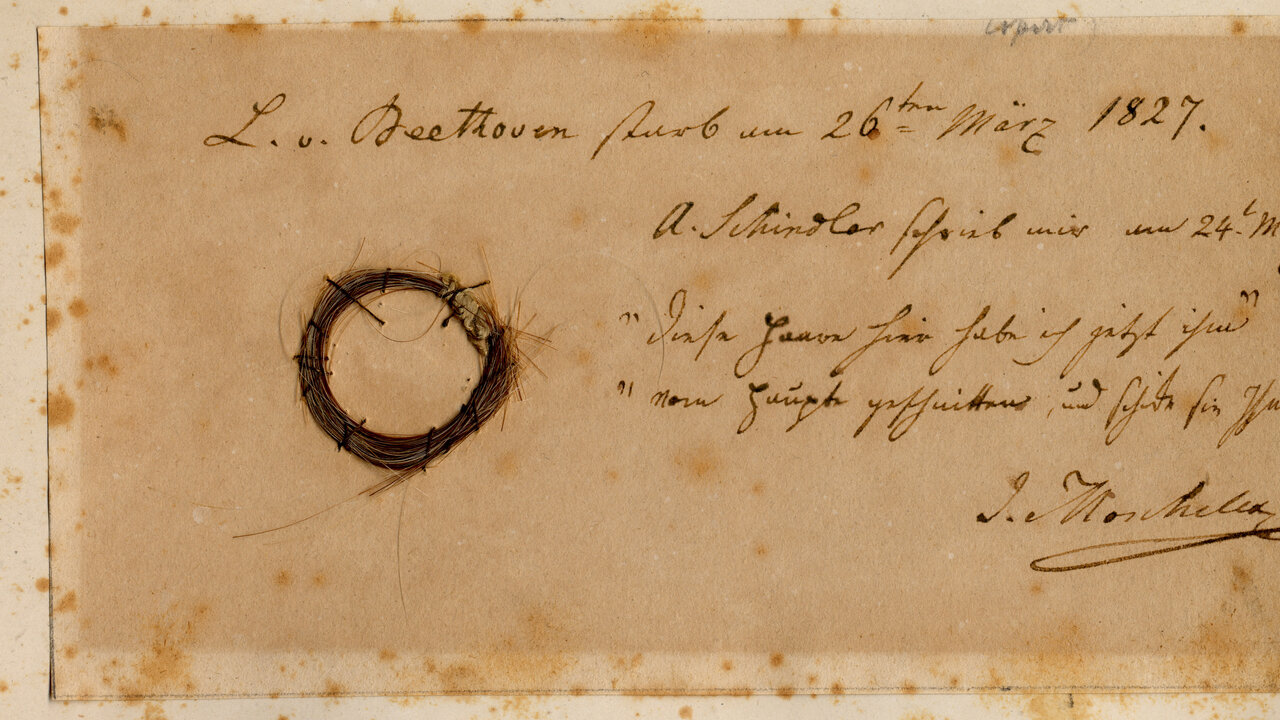 L. v. Beethoven starb am 26ten März 1827.
A. Schindler schrieb mir am 24t. M
"Diese Haare hier habe ich jetzt ihm"
"vom Haupte geschnitten, und schicke sie Ihn
J. Moscheles